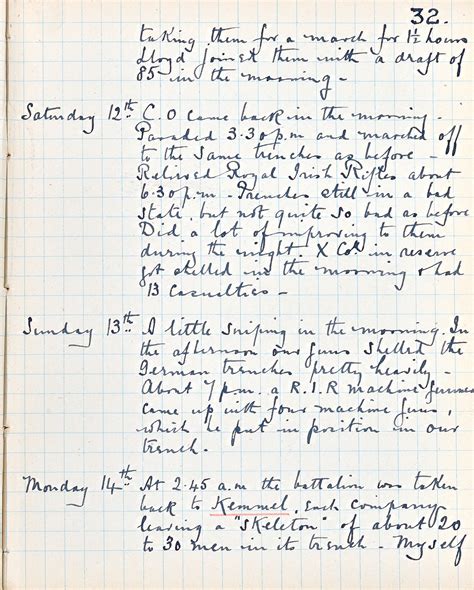 32.
taking them for a march for 1½ hours
Lloyd joined them with a draft of
85 in the morning –
Saturday 12th C.O came back in the morning –
Paraded 3.30 p.m and marched off
to the same trenches as before –
Relieved Royal Irish Rifles about
6.30 p.m – Trenches still in a bad
state, but not quite so bad as before
Did a lot of improving to them
during the night. X Coy in reserve
got shelled in the morning & had
13 casualties –
Sunday 13th A little sniping in the morning. In
the afternoon our guns shelled the
German trenches pretty heavily –
About 7 p.m. a R.I.R machine gunner
came up with four machine guns,
which he put in position in our
trench.
Monday 14th At 2.45 a.m the battalion was taken
back to Kemmel, each company
leaving a "skeleton" of about 20
to 30 men in its trench – Myself